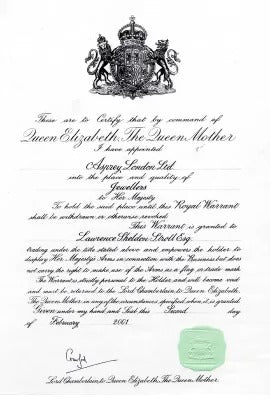 These are to Certify that by command of
Queen Elizabeth, The Queen Mother
I have appointed
Asprey London Ltd.
into the place and quality of
Jewellers
to Her Majesty
To hold the said place until this Royal Warrant
shall be withdrawn or otherwise revoked.
This Warrant is granted to
Lawrence Sheldon Stroll Esq.
trading under the title stated above and empowers the holder to
display Her Majesty's Arms in connection with the Business but does
not carry the right to make use of the Arms as a flag or trade mark.
The Warrant is strictly personal to the Holder and will become void
and must be returned to the Lord Chamberlain to Queen Elizabeth,
The Queen Mother in any of the circumstances specified when it is granted.
Given under my hand and Seal this Second day
of February 2001.
Lord Chamberlain to Queen Elizabeth, The Queen Mother.